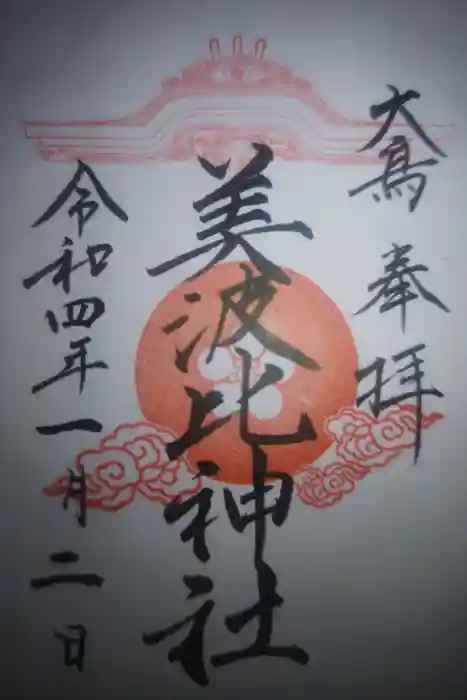 大鳥 奉拝
美波比神社
令和四年一月二日